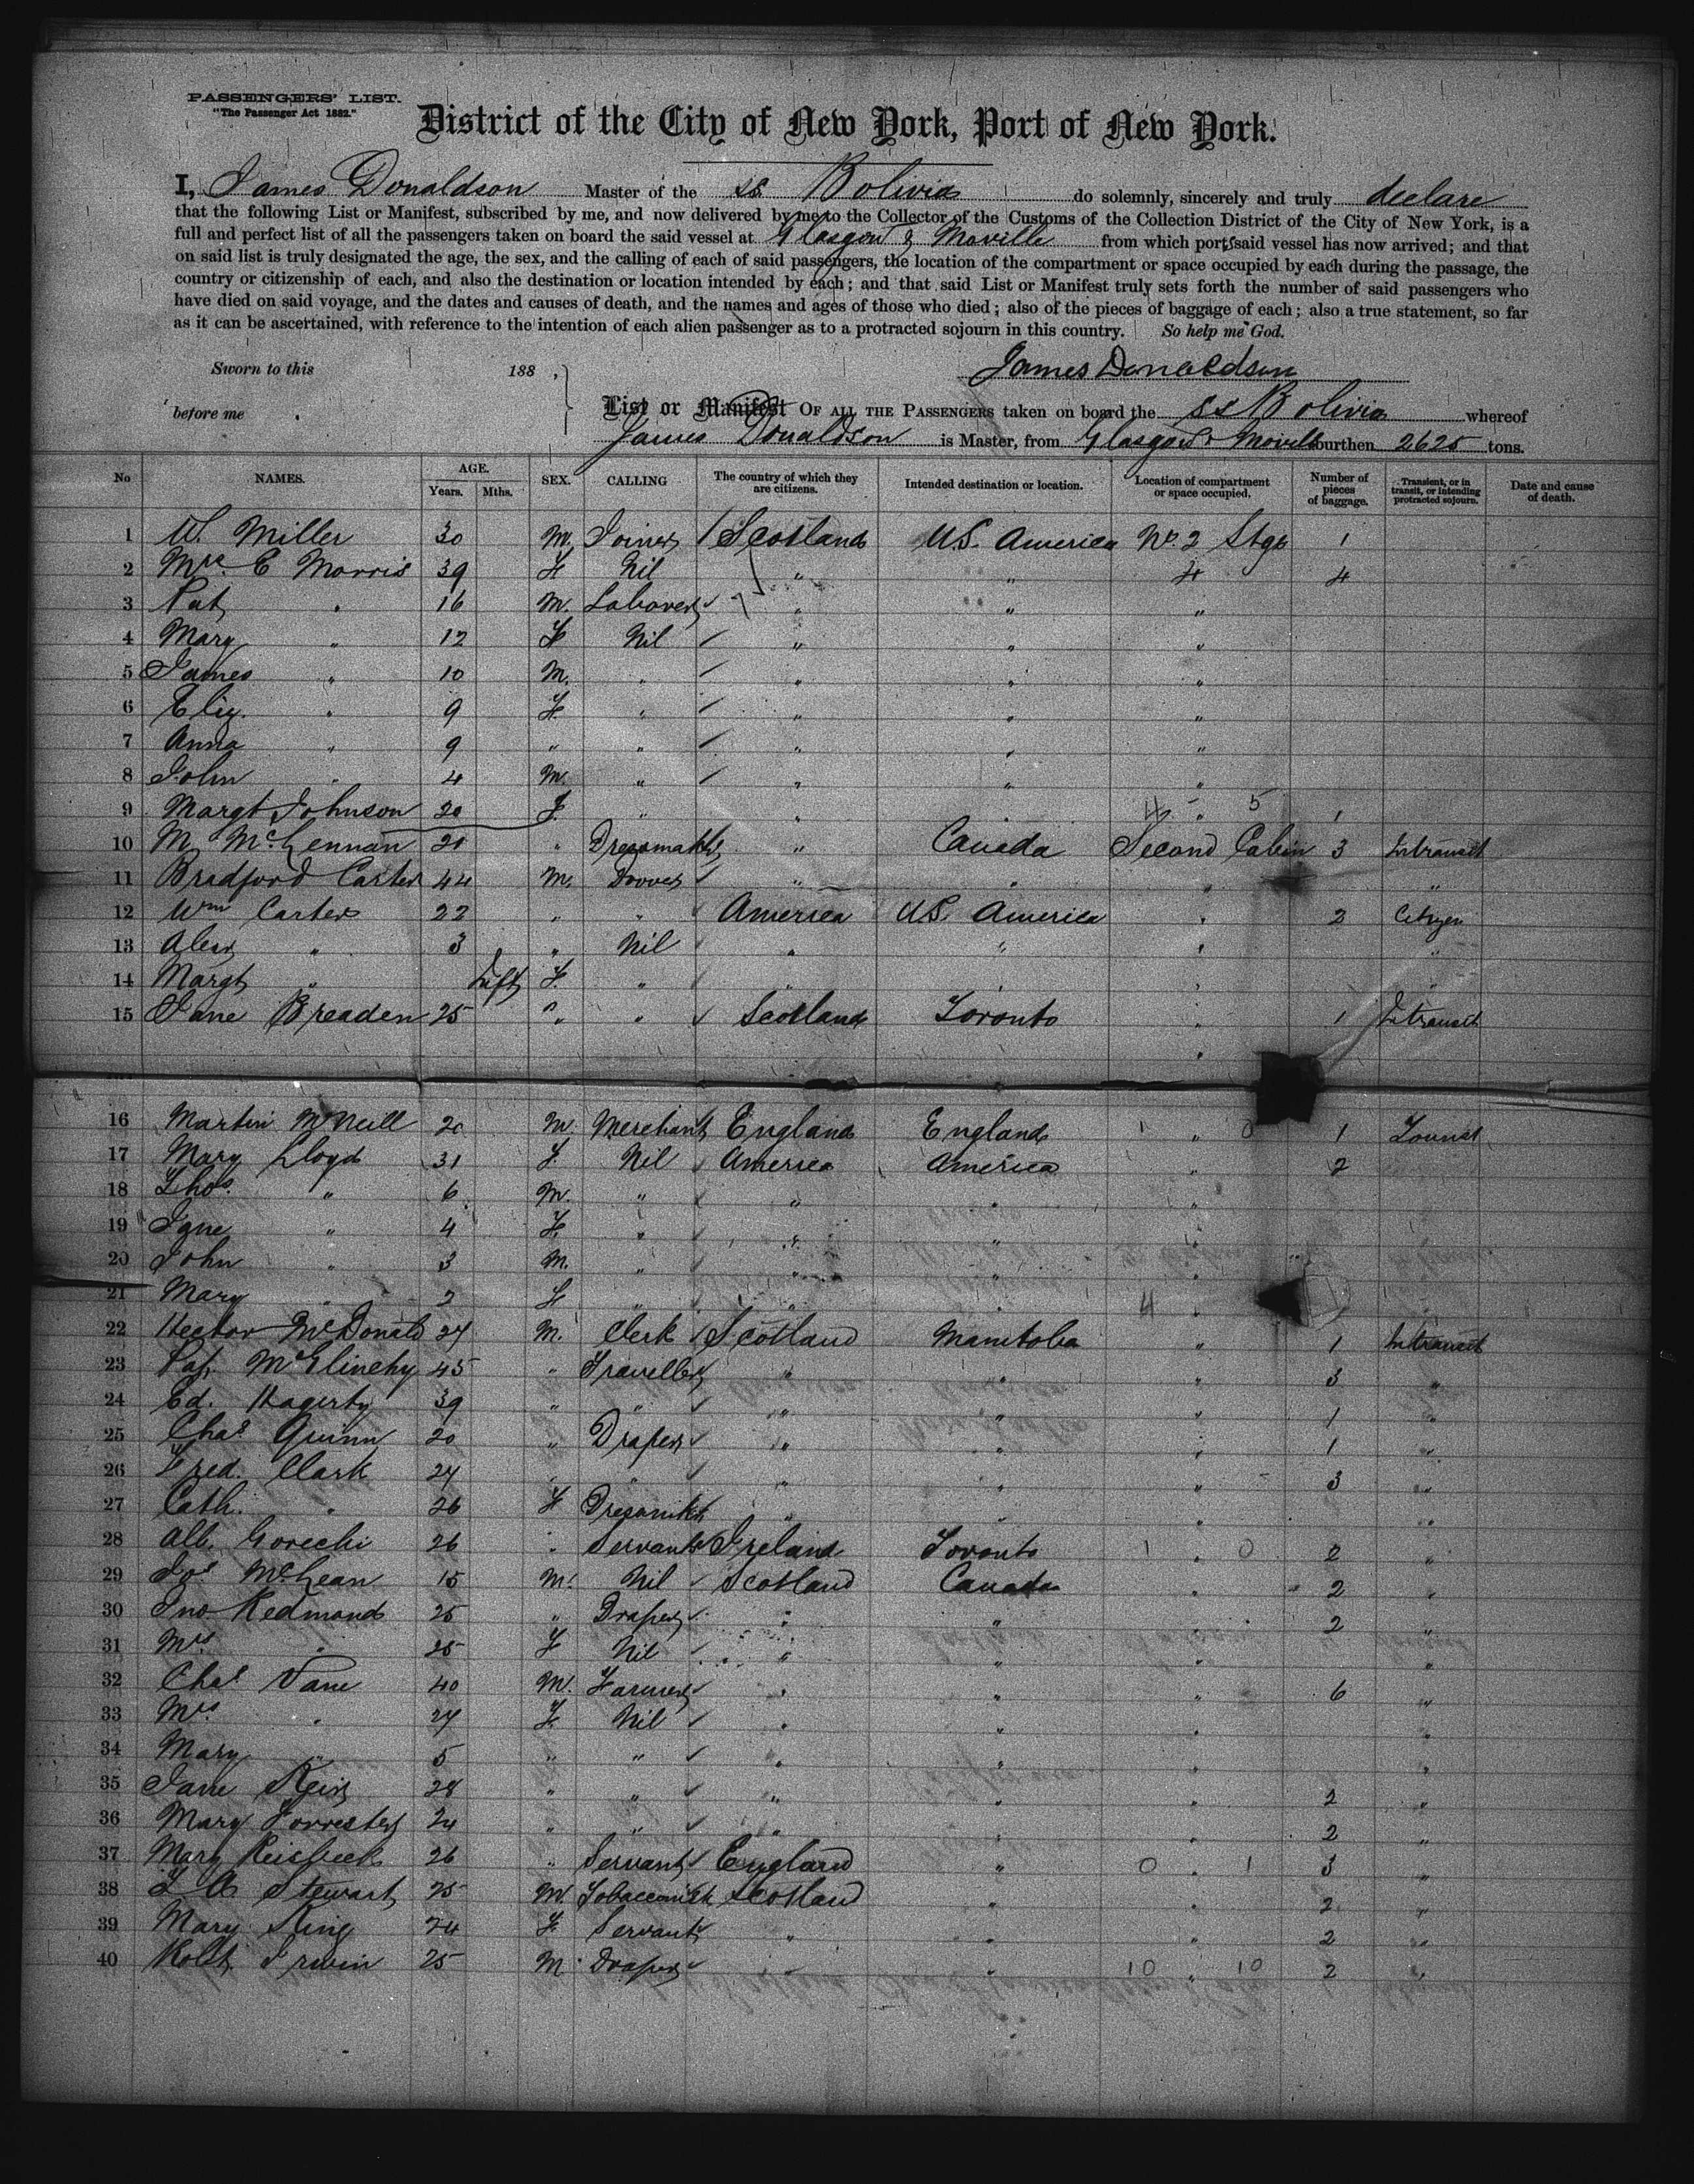 PASSENGERS' LIST.
"The Passenger Act 1882."
District of the City of New York, Port of New York.
I, James Donaldson Master of the ss Bolivia do solemnly, sincerely and truly declare
that the following List or Manifest, subscribed by me, and now delivered by me to the Collector of the Customs of the Collection District of the City of New York, is a
full and perfect list of all the passengers taken on board the said vessel at Glasgow & Moville from which ports said vessel has now arrived; and that
on said list is truly designated the age, the sex, and the calling of each of said passengers, the location of the compartment or space occupied by each during the passage, the
country or citizenship of each, and also the destination or location intended by each; and that said List or Manifest truly sets forth the number of said passengers who
have died on said voyage, and the dates and causes of death, and the names and ages of those who died; also of the pieces of baggage of each; also a true statement, so far
as it can be ascertained, with reference to the intention of each alien passenger as to a protracted sojourn in this country. So help me God.
James Donaldson
Sworn to this 188 ,
before me
List or Manifest OF ALL THE PASSENGERS taken on board the ss Bolivia whereof
James Donaldson is Master, from Glasgow & Moville burthen 2625 tons.
No NAMES. AGE. Years. Mths. SEX. CALLING The country of which they are citizens. Intended destination or location. Location of compartment or space occupied. Number of pieces of baggage. Transient, or in transit, or intending protracted sojourn. Date and cause of death.
1 W. Miller 30 M. Joiner / Scotland U.S. America No. 2 Stge 1
2 Mrs. E Morris 39 F Nil " " 4 4
3 Pat " 16 M. Laborer " " "
4 Mary " 12 F Nil " " "
5 James " 10 M. " " " "
6 Eliz. " 9 F. " " " "
7 Anna " 9 " " " " "
8 John " 4 M. " " " "
9 Margt Johnson 20 F. " " " 4 " 5 1
10 M. McLennan 21 " Dressmaker " Canada Second Cabin 3 Intransit
11 Bradford Carter 44 M. Drover " " " "
12 Wm Carter 22 " " America U.S. America " 2 Citizen
13 Alex " 3 " Nil " " " "
14 Margt " Inft F. " " " " "
15 Jane Breaden 25 " " Scotland Toronto " 1 Intransit
16 Martin McNeill 20 M. Merchant England England 1 " 0 1 Tourist
17 Mary Lloyd 31 F. Nil America America " 2
18 Thos. " 6 M. " " " "
19 Jane " 4 F. " " " "
20 John " 3 M. " " " "
21 Mary " 2 F " " " 4 "
22 Hector McDonald 24 M. Clerk Scotland Manitoba " 1 Intransit
23 Pat. McGlinchy 45 " Traveller " " " 3 "
24 Ed. Hagerty 39 " " " " " 1 "
25 Chas. Quinn 20 " Draper " " " 1 "
26 Fred. Clark 24 " " " " " 3 "
27 Cath. " 26 F Dressmkr " " " "
28 Alb. Gorechi 26 " Servant Ireland Toronto 1 " 0 2 "
29 Jos McLean 15 M. Nil Scotland Canada " 2 "
30 Jno Redmond 25 " Draper " " " 2 "
31 Mrs " 25 F Nil " " " "
32 Chas Vane 40 M. Farmer " " " 6 "
33 Mrs. " 27 F. Nil " " " "
34 Mary " 5 " " " " " "
35 Jane Reid 28 " " " " " 2 "
36 Mary Forrester 24 " " " " " 2 "
37 Mary 26 " Servant England " 0 " 1 3 "
38 Stewart 25 M. Tobacconist Scotland " " 2 "
39 Mary King 24 F. Servant " " " 2 "
40 Robt. Irwin 25 M. Draper " " 10 " 10 2 "